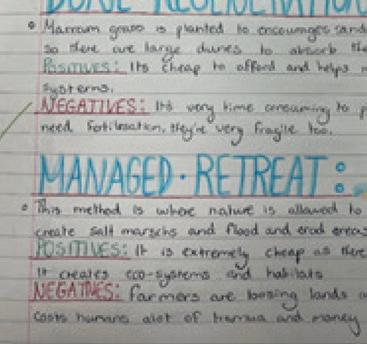 DUNE REGENERATION
• Marram grass is planted to encourages sand
so there are large dunes to absorb the
POSITIVES: Its cheap to afford and helps
systems.
NEGATIVES: Its very time consuming to p
need fertilisation, they're very fragile too.
MANAGED · RETREAT :
• This method is where nature is allowed to
create salt marschs and flood and erod ereas
POSITIVES: It is extremely cheap as there
It creates eco-systems and habitats
NEGATIVES: Farmers are loosing lands a
Costs humans alot of and money